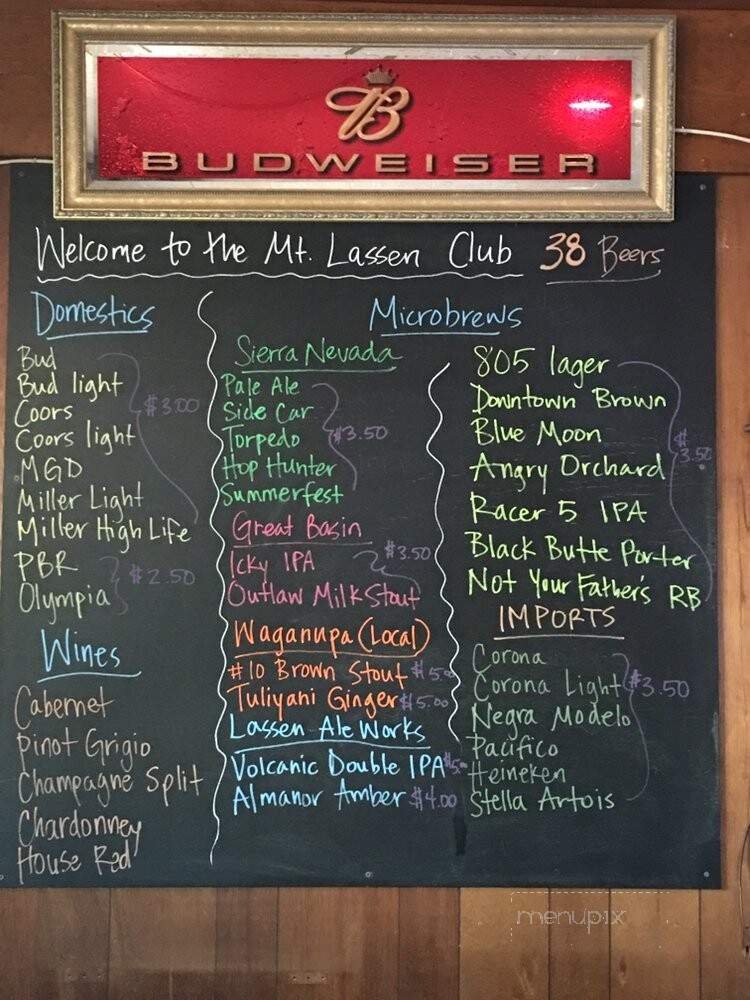 B
BUDWEISER
Welcome to the Mt. Lassen Club 38 Beers
Domestics
Bud
Bud light
Coors
Coors light
$3.00
MGD
Miller Light
Miller High Life
PBR
Olympia
$2.50
Wines
Cabernet
Pinot Grigio
Champagne Split
Chardonney
House Red
Microbrews
Sierra Nevada
Pale Ale
Side Car
Torpedo
$3.50
Hop Hunter
Summerfest
Great Basin
Icky IPA
$3.50
Outlaw Milk Stout
Waganupa (Local)
#10 Brown Stout $5.00
Tuliyani Ginger $5.00
Lassen Ale Works
Volcanic Double IPA $5.00
Almanor Amber $4.00
805 lager
Downtown Brown
Blue Moon
$3.50
Angry Orchard
Racer 5 IPA
Black Butte Porter
Not Your Father's RB
IMPORTS
Corona
Corona Light $3.50
Negra Modelo
Pacifico
Heineken
Stella Artois
menupix